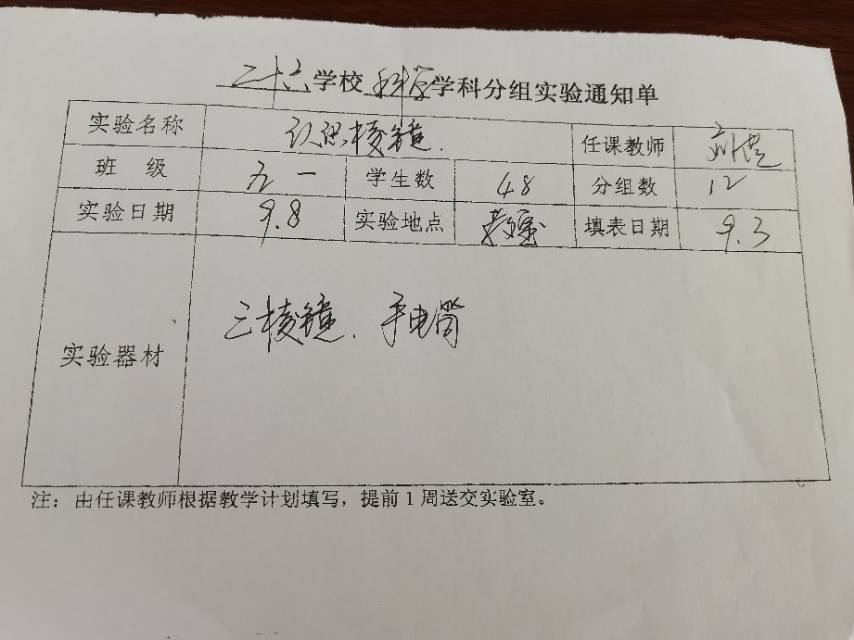 二十六学校科学学科分组实验通知单
实验名称 认识棱镜. 任课教师 刘
班 级 五一 学生数 48 分组数 12
实验日期 9.8 实验地点 教室 填表日期 9.3
实验器材 三棱镜. 手电筒
注：由任课教师根据教学计划填写，提前1周送交实验室。